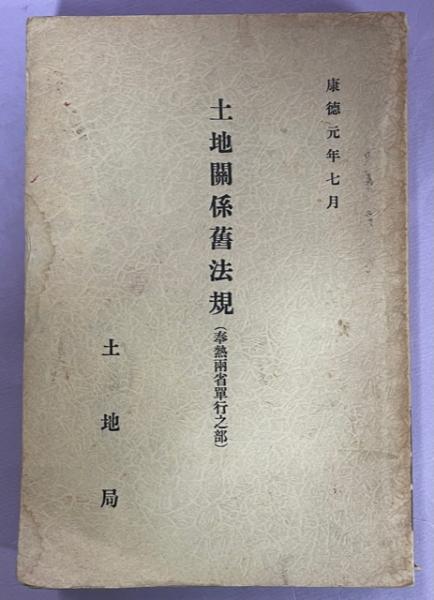 康德元年七月
土地關係舊法規(奉熱兩省單行之部)
土地局